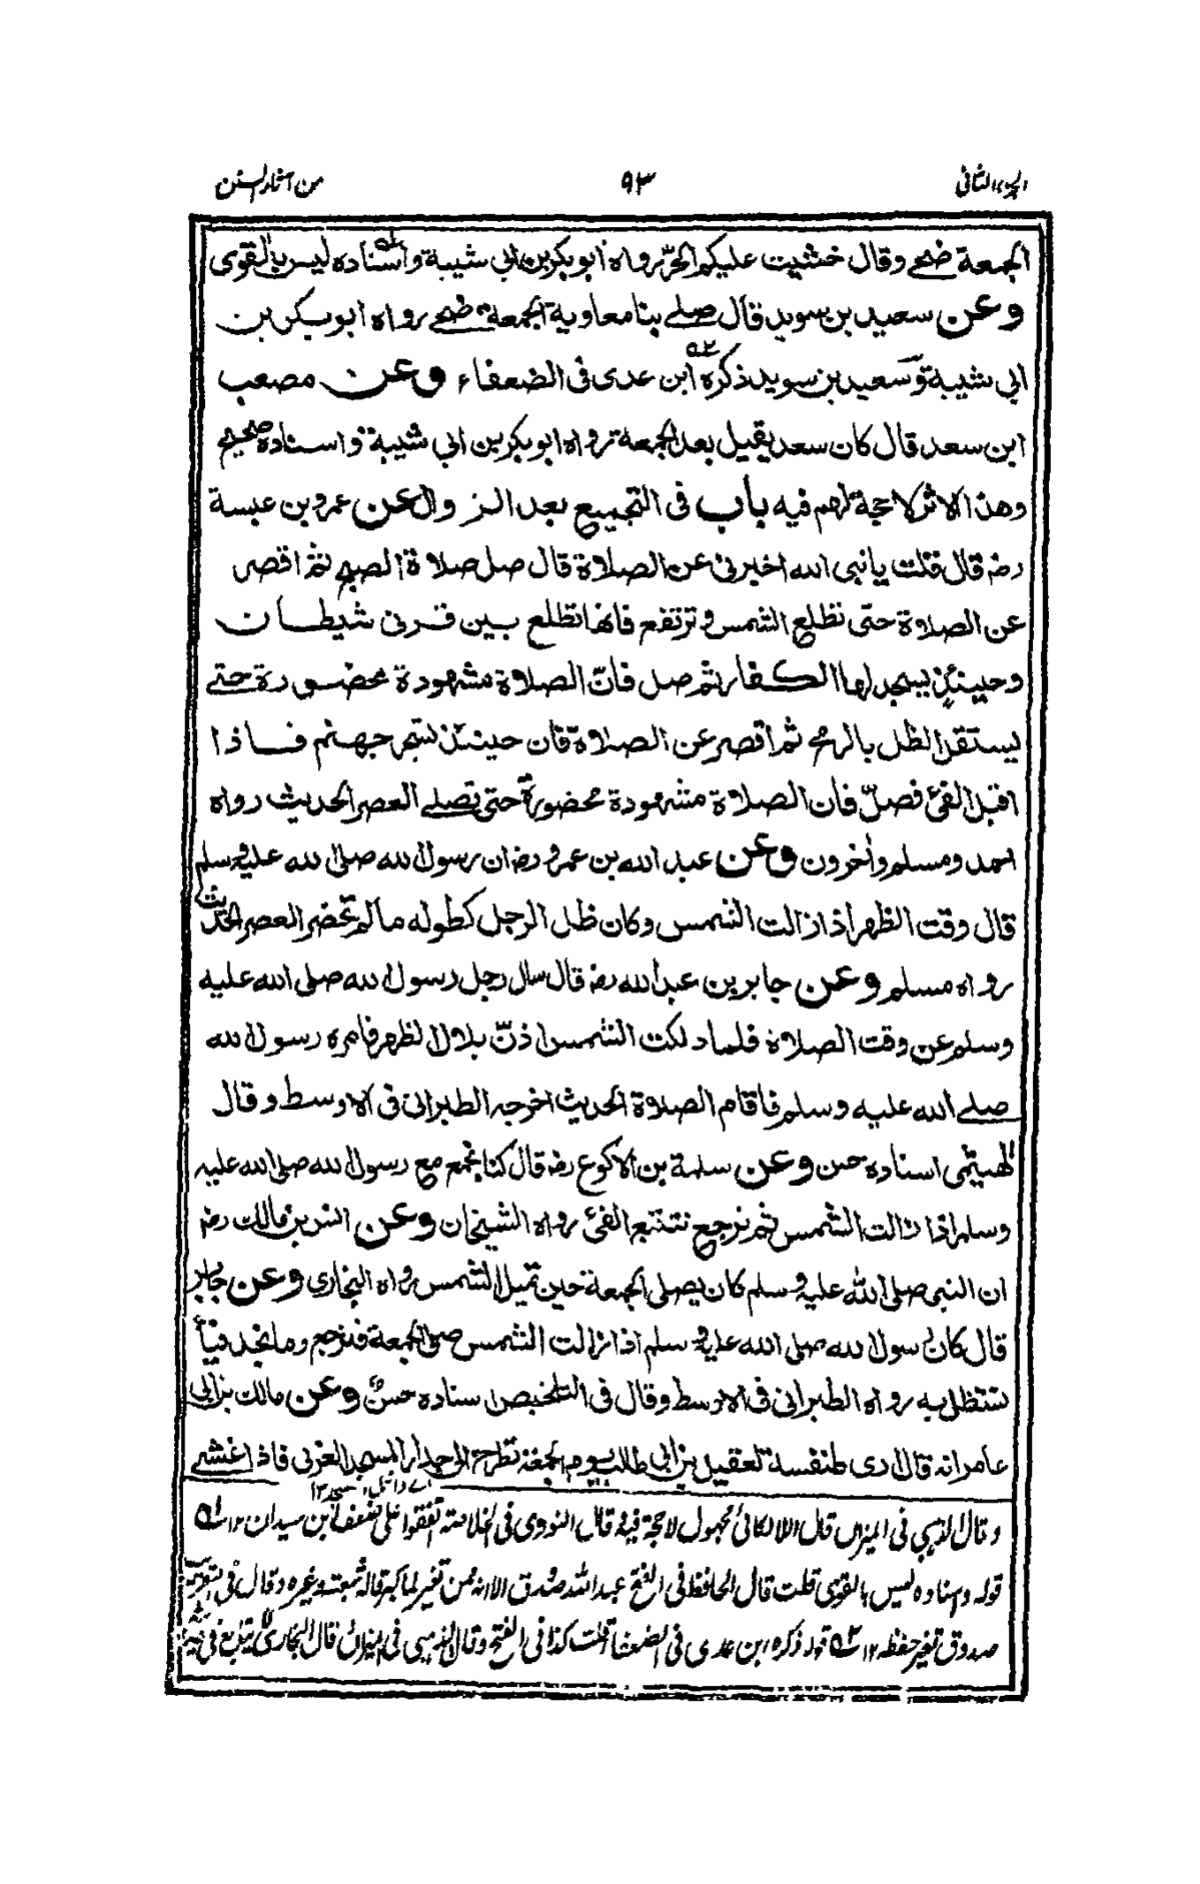 الجزء الثانی ٩٣ من آثار السنن
الجمعة ضحی وقال خشیت علیکم الحرّ رواه ابوبکر بن ابی شیبة واسناده لیس بالقوی
وعن سعید بن سوید قال صلے بنا معاویة الجمعة ضحی رواه ابو بکر بن
ابی شیبة وسعید بن سوید ذکره ابن عدی فی الضعفاء وعن مصعب
ابن سعد قال کان سعد یقیل بعد الجمعة رواه ابوبکر بن ابی شیبة واسناده صحیح
وهذا الاثر لا حجة لهم فیه باب فی التجمیع بعد الزوال عن عمرو بن عبسة
رضہ قال قلت یا نبی الله اخبرنی عن الصلاة قال صل صلاة الصبح ثم اقصر
عن الصلاة حتی تطلع الشمس وترتفع فانها تطلع بین قرنی شیطان
وحینئذ یسجد لها الکفار ثم صل فانّ الصلاة مشهودة محضورة حتے
یستقل الظل بالرمح ثم اقصر عن الصلاة فان حینئذ تسجر جهنم فاذا
اقبل الفئ فصلّ فان الصلاة مشهودة محضورة حتی تصلے العصر الحدیث رواه
احمد ومسلم وأخرون وعن عبد الله بن عمرو رضہ ان رسول الله صلی الله علیہ وسلم
قال وقت الظهر اذا زالت الشمس وکان ظل الرجل کطوله ما لم تحضر العصر الحدیث
رواه مسلم وعن جابر بن عبد الله رضہ قال سأل رجل رسول الله صلی الله علیه
وسلم عن وقت الصلاة فلما دلکت الشمس اذنّ بلال الظهر فامره رسول الله
صلے الله علیه وسلم فاقام الصلوة الحدیث اخرجه الطبرانی فی الاوسط وقال
الهیثمی اسناده حسن وعن سلمة بن الاکوع رضہ قال کنا نجمع مع رسول الله صلی الله علیہ
وسلم اذا زالت الشمس ثم نرجع نتتبع الفئ رواه الشیخان وعن انس بن مالك رضہ
ان النبی صلی الله علیہ وسلم کان یصلی الجمعة حین تمیل الشمس رواه البخاری وعن جابر
قال کان رسول الله صلی الله علیہ وسلم اذا زالت الشمس صلی الجمعة فنرجع وما نجد فیأً
نستظل به رواه الطبرانی فی الاوسط وقال فی التلخیص اسناده حسن وعن مالك بن ابی
عامر انه قال اری طنفسة لعقیل بن ابی طالب یوم الجمعة تطرح الی جدار المسجد الغربی فاذا غشے
اے داخل المسجد ١٢
وقال الذہبی فی المیزان قال اللالکائی مجہول لا حجة فیہ وقال النووی فی الخلاصة اتفقوا علی ضعف ابن سیدان ١٢ ٥١
قولہ واسناده لیس بالقوی قلت قال الحافظ فی الفتح عبد اللہ صدوق الا انہ ممن تغیر لما کبر قالہ شعبة وغیره وقال فی التقریب
صدوق تغیر حفظہ ١٢ ٥٢ قولہ ذکره ابن عدی فی الضعفا قلت کذا فی الفتح وقال الذہبی فی المیزان قال البخاری لا یتابع فی